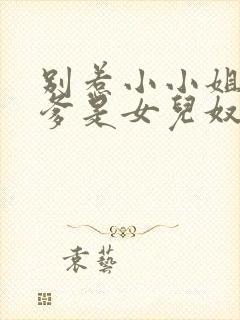 別惹小小姐
爹是女兒奴
袁藝